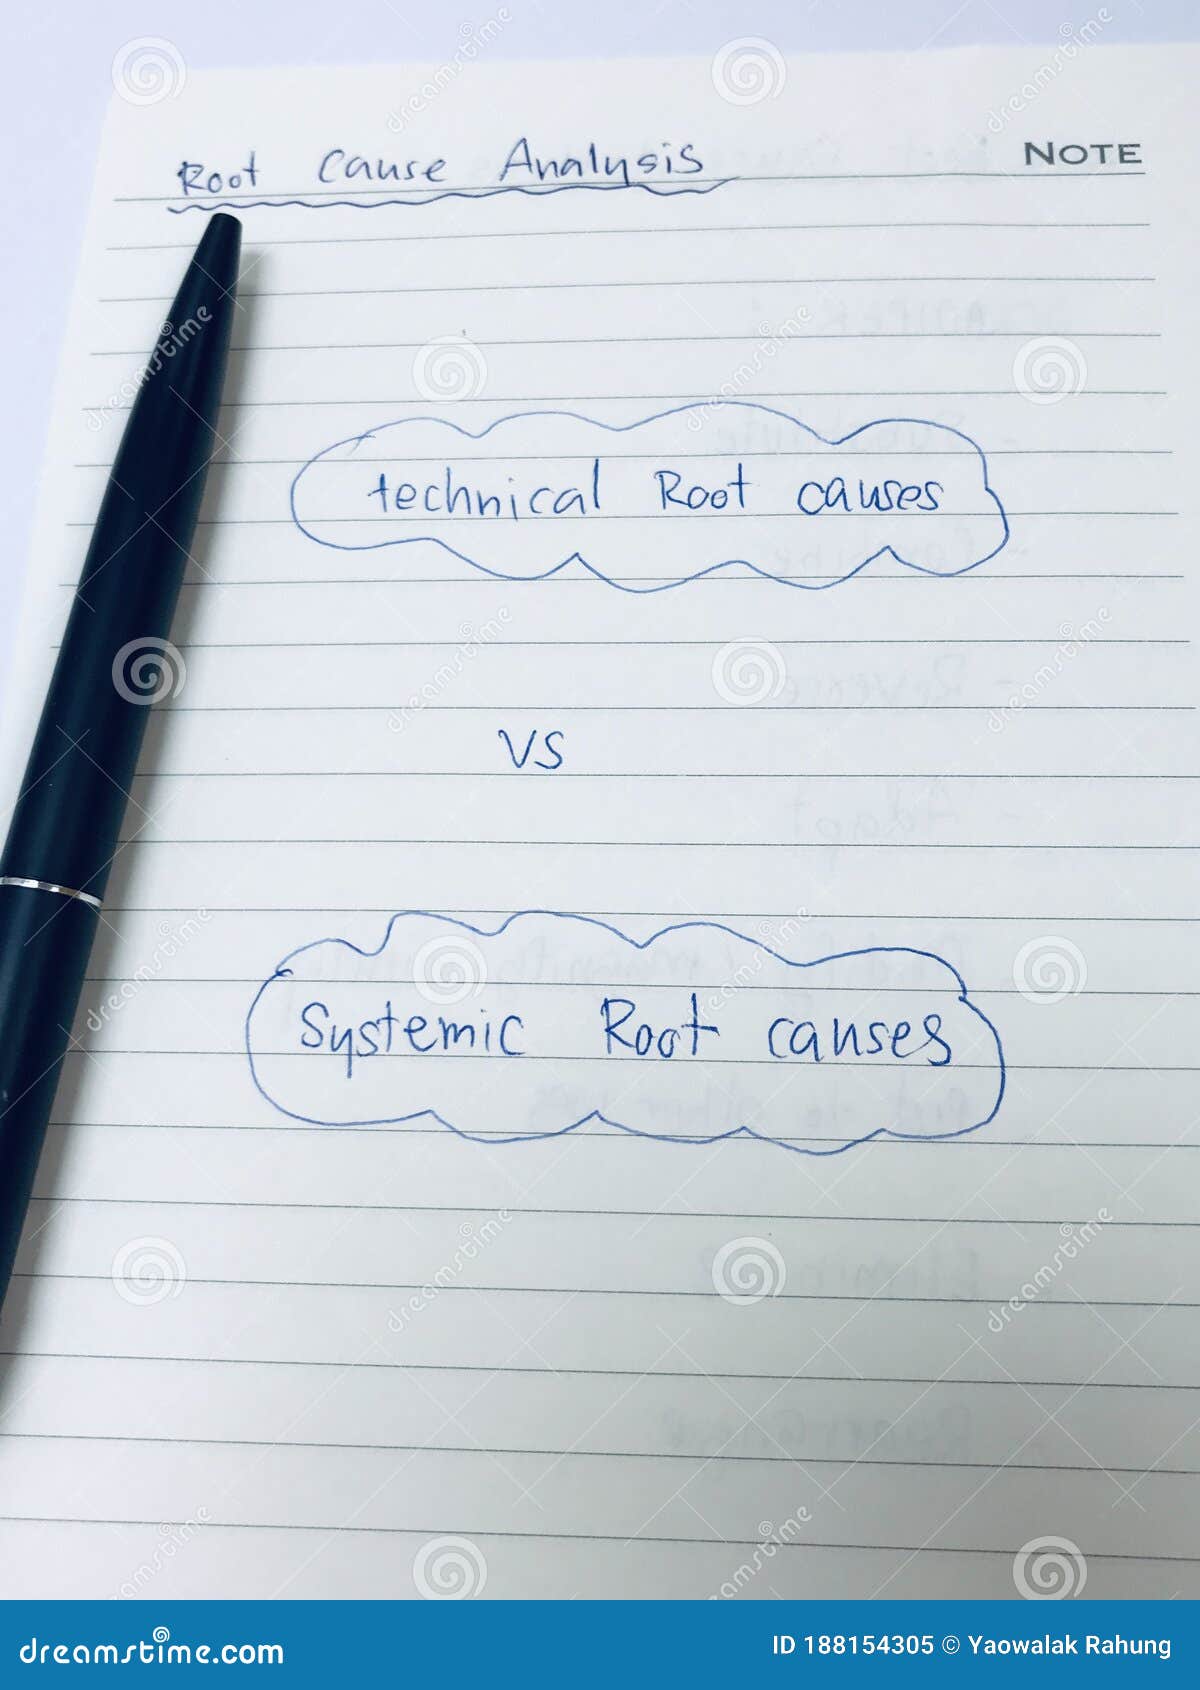 Root Cause Analysis
NOTE
technical Root causes
VS
Systemic Root causes
dreamstime.com
ID 188154305 © Yaowalak Rahung